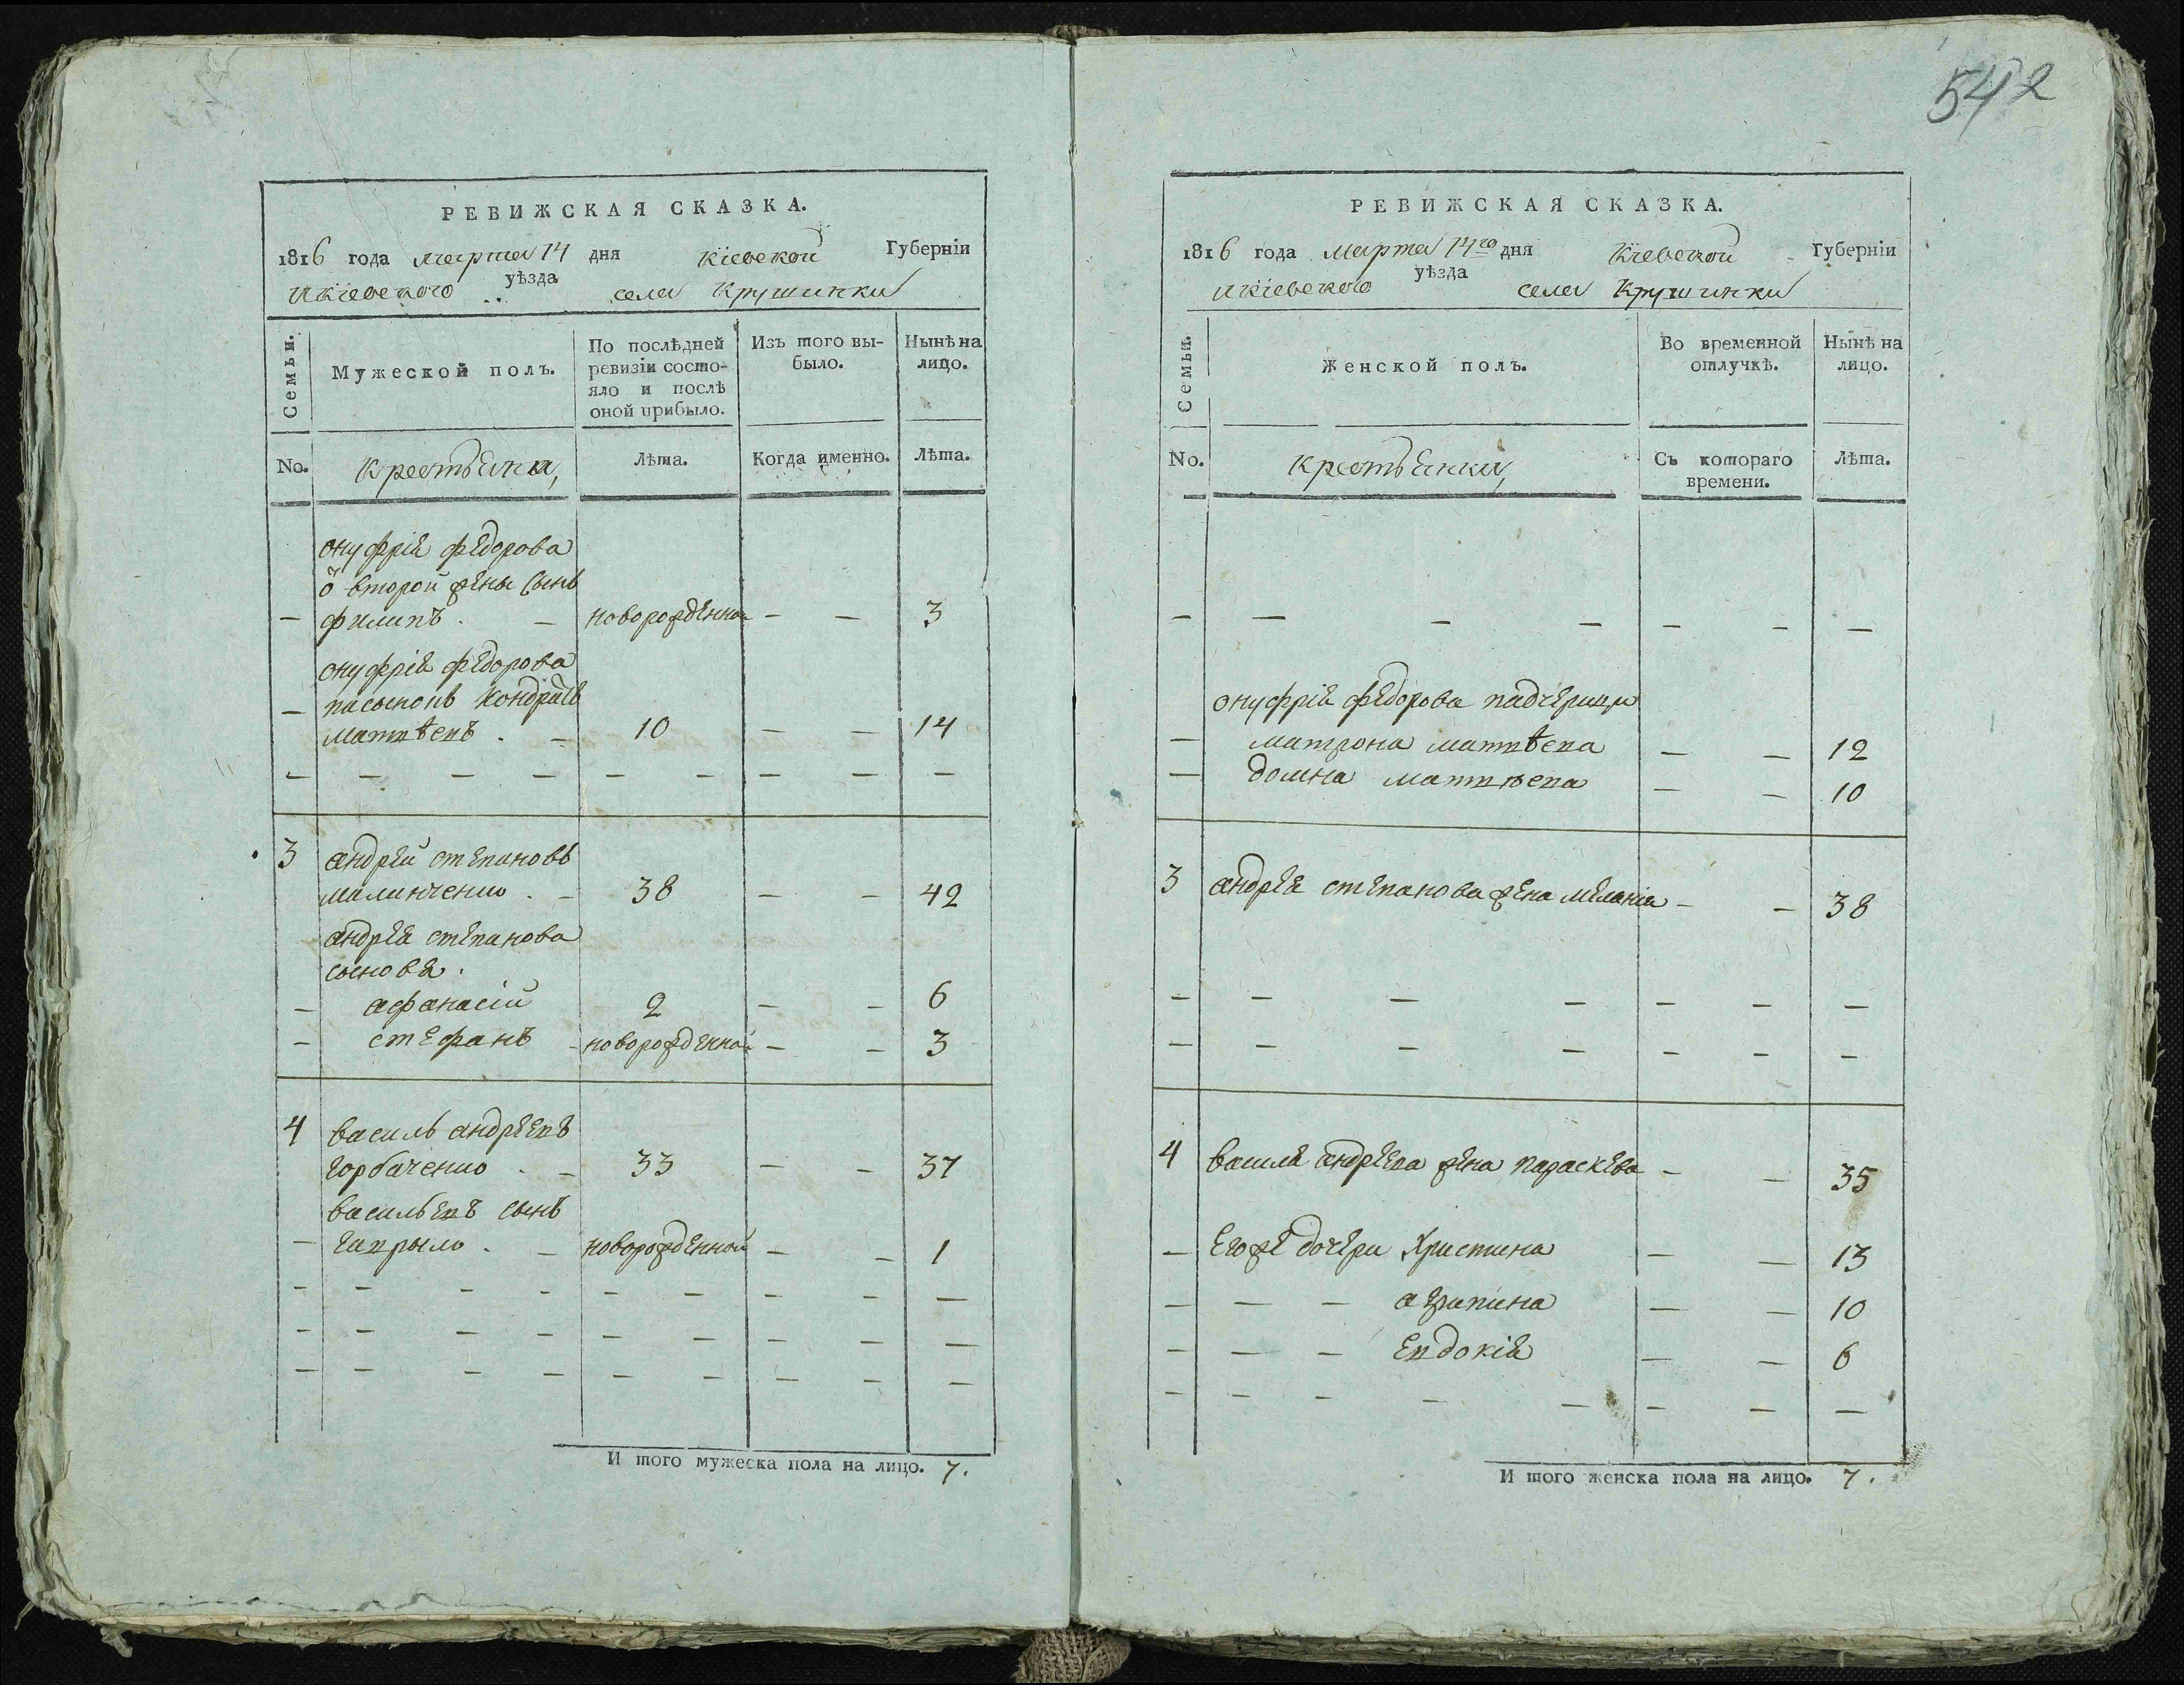 542
РЕВИЖСКАЯ СКАЗКА.
1816 года марта 14 дня Кіевской Губерніи
Икіевского уѣзда села Крушинки
Семьи.
Мужеской полъ.
По послѣдней ревизіи состо-
яло и послѣ
оной прибыло.
Изъ того вы-
было.
Нынѣ на
лицо.
No. Крестьяня, Лѣта. Когда именно. Лѣта.
онуфрія федорова
ѿ второй жены сынъ
— филипъ . — новорожденной — — 3
онуфрія федорова
— пасынокъ Кондратъ
матвѣевъ . — 10 — — 14
— — — — — — — — —
3 андрей степановъ
малинченко . — 38 — — 42
андрея степанова
сыновя .
— афанасій 2 — — 6
— стефанъ - новорожденной — — 3
4 василь андреевъ
горбаченко . — 33 — — 37
васильевъ сынъ
— гаврыло . — новорожденной — — 1
— — — — — — — — —
— — — — — — — — —
— — — — — — — — —
И того мужеска пола на лицо. 7.
РЕВИЖСКАЯ СКАЗКА.
1816 года марта 14го дня Кіевской Губерніи
Икіевского уѣзда села Крушинки
Семьи.
Женской полъ.
Во временной
отлучкѣ.
Нынѣ на
лицо.
No. Крестьянки, Съ котораго
времени. Лѣта.
— — — — — — —
онуфрія федорова падчерицы
— матрона матвѣева — — 12
— домна матвѣева — — 10
3 андрея степанова жена меланія — — 38
— — — — — — —
— — — — — — —
4 василя андреева жена параскева — — 35
— Егоже дочери Христина — — 13
— — — агрипина — — 10
— — — Евдокія — — 6
— — — — — — — —
И того женска пола на лицо. 7.